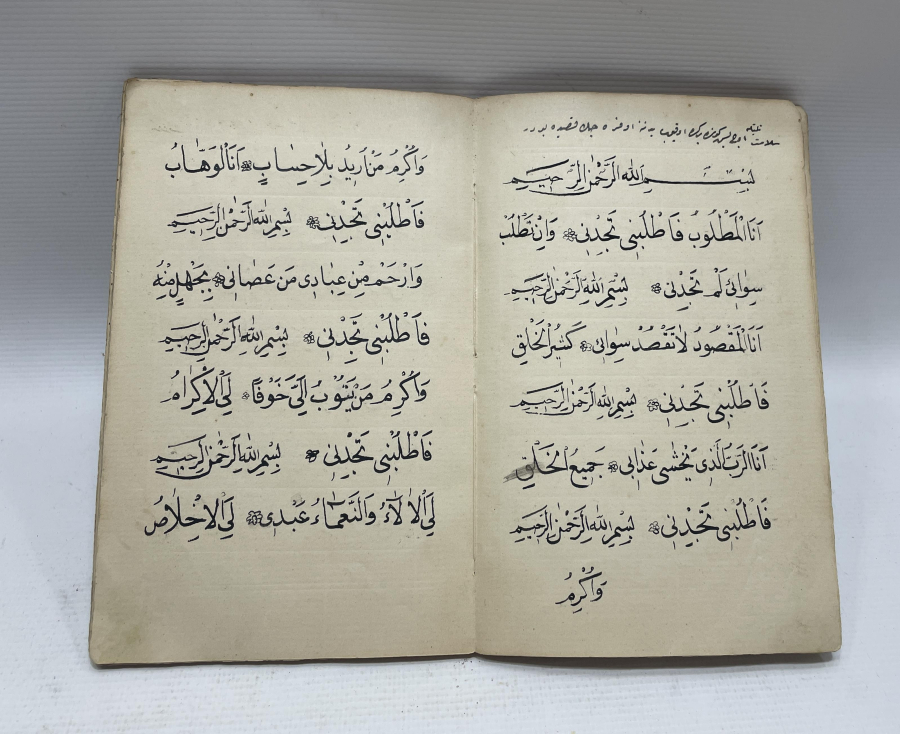 بِسْــــمِ اللهِ الرَّحْمٰنِ الرَّحِيمِ
اَنَا الْمَطْلُوبُ فَاطْلُبْنِى تَجِدْنِى وَاِنْ تَطْلُبْ
سِوَائِى لَمْ تَجِدْنِى بِسْمِ اللهِ الرَّحْمٰنِ الرَّحِيمِ
اَنَا الْمَقْصُودُ لَا تَقْصُدْ سِوَائِى كَثِيرُ الْخَلْقِ
فَاطْلُبْنِى تَجِدْنِى بِسْمِ اللهِ الرَّحْمٰنِ الرَّحِيمِ
اَنَا الرَّبُّ الَّذِى يَخْشٰى عَذَابِى جَمِيعُ الْخَلْقِ
فَاطْلُبْنِى تَجِدْنِى بِسْمِ اللهِ الرَّحْمٰنِ الرَّحِيمِ
وَاُكْرِمُ
وَاُكْرِمُ مَنْ اُرِيدُ بِلَا حِسَابٍ اَنَا الْوَهَّابُ
فَاطْلُبْنِى تَجِدْنِى بِسْمِ اللهِ الرَّحْمٰنِ الرَّحِيمِ
وَارْحَمْ مِنْ عِبَادِى مَنْ عَصَانِى بِجَهْلٍ مِنْهُ
فَاطْلُبْنِى تَجِدْنِى بِسْمِ اللهِ الرَّحْمٰنِ الرَّحِيمِ
وَاُكْرِمُ مَنْ يَتُوبُ اِلَىَّ خَوْفًا لِىَ الْاِكْرَامُ
فَاطْلُبْنِى تَجِدْنِى بِسْمِ اللهِ الرَّحْمٰنِ الرَّحِيمِ
لِىَ الْاٰلَاءُ وَالنَّعْمَاءُ عَبْدِى لِىَ الْاِخْلَاصُ